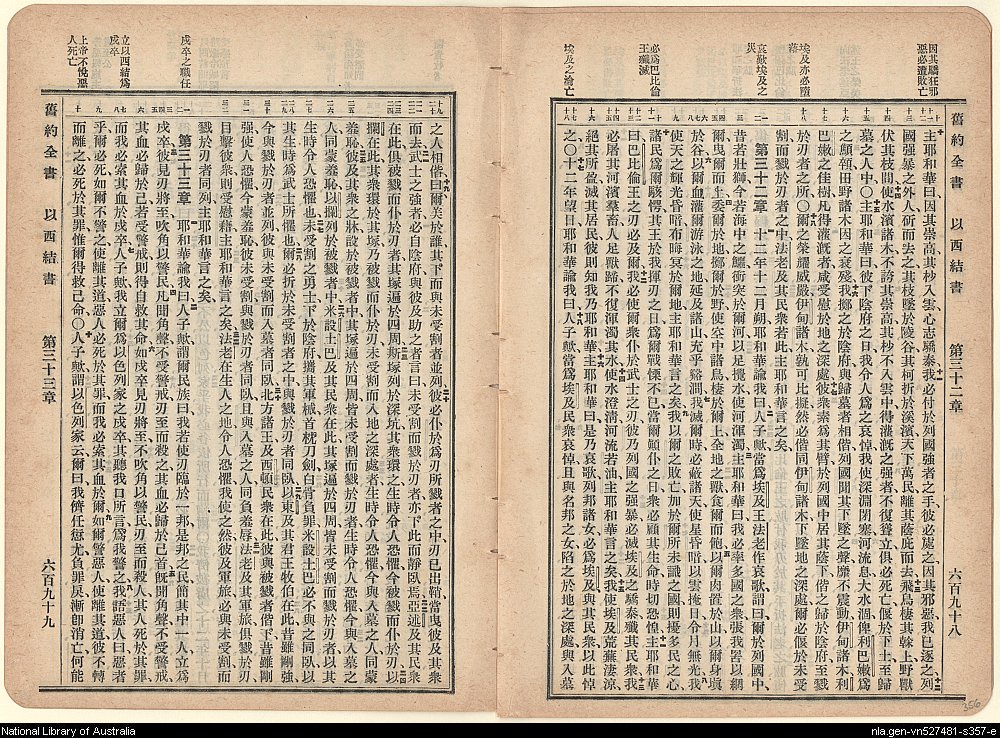 因其驕狂邪
惡必遭敗亡
埃及亦必隨
落
哀歎埃及之
災
必爲巴比倫
王殲滅
埃及之淪亡
舊約全書 以西結書 第三十二章 六百九十八
主耶和華曰因其崇高其杪入雲心志驕泰我必付於列國強者之手彼必處之因其邪惡我已逐之列
國強暴之外人斫而去之其枝墜於陵谷其柯折於溪濱天下萬民離其蔭庇而去飛鳥棲其榦上野獸
伏其枝間使水濱諸木不誇其崇高其杪不入雲中得灌漑之強者不復聳立俱必死亡偃於下土至歸
墓之人中〇主耶和華曰彼下陰府之日我令人爲之哀悼我使深淵閉塞河流息大水涸俾利巴嫩爲
之顑頷田野諸木因之衰殘我擲之於陰府與歸墓者相偕列國聞其下墜之聲靡不震動伊甸諸木利
巴嫩之佳樹凡得灌漑者咸受慰於地之深處彼衆素爲其臂於列國中居其蔭下偕之歸於陰府至戮
於刃者之所〇爾之榮耀威嚴伊甸諸木孰可比擬然必偕同伊甸諸木下墜地之深處爾必偃於未受
割而戮於刃者之中法老及其民衆若此主耶和華言之矣
第三十二章 十二年十二月朔耶和華諭我曰人子歟當爲埃及王法老作哀歌謂曰爾於列國中
昔若壯獅今若海中之鱷衝突於爾河以足攪水使河渾濁主耶和華曰我必率多國之衆張我罟以網
爾曳爾而上委爾於地擲爾於野使空中諸鳥棲於爾上全地之獸食爾而飽以爾肉置於山以爾身塡
於谷以爾血灌爾游泳之地延及諸山充乎谿澗我滅爾時必蔽諸天使星昏暗以雲掩日令月無光我
使天之輝光昏暗布晦冥於爾地主耶和華言之矣我以爾之敗亡加於爾所未識之國則擾多民之心
諸民爲爾駭愕其王於我揮刃之日爲爾戰慄不已當爾傾仆之日衆必顧其生命時切恐惶主耶和華
曰巴比倫王之刃必及爾我必使爾衆仆於武士之刃彼乃列國之強暴必滅埃及之驕泰殲其民衆我
必屠其河濱羣畜人足獸蹄不復渾濁其水使其水澄淸河流若油主耶和華言之矣我使埃及荒蕪淒涼
絕其所盈滅其居民彼則知我乃耶和華主耶和華曰是乃哀歌列邦諸女必爲埃及與其民衆以此悼
之〇十二年月望日耶和華諭我曰人子歟當爲埃及民衆哀悼且與名邦之女陷之於地之深處與入墓
356
戍卒之職任
立以西結爲
戍卒
上帝不悅惡
人死亡
之人相偕曰爾美於誰其下而與未受割者並列彼必仆於爲刃所戮者之中刃已出鞘當曳彼及其衆
而去武士之強者必自陰府與彼及助之者言曰未受割而戮於刃者亦下此而靜臥焉亞述及其民衆
在此俱被戮而仆於刃者其塚遍於四周斯塚列於深坑其衆環之生時令人恐懼今被戮而仆於刃以
攔在此其衆環於其塚乃被戮而仆於刃未受割而入地之深處者生時令人恐懼今與入墓之人同蒙
羞恥彼及其衆之牀設於被戮者中其塚遍於四周皆未受割而戮於刃者生時令人恐懼今與入墓之
人同蒙羞恥以攔列於被戮者中米設土巴及其民衆在此其塚遍於四周皆未受割而戮於刃者以其
生時令人恐懼也未受割之勇士下於陰府攜其軍械首枕刀劍白骨負罪米設土巴必不與之同臥以
其生時爲武士所懼也爾必折於未受割者之中與戮於刃者同臥以東及其君王牧伯在此昔雖剛強
今與戮於刃者並列彼與未受割而入墓者同臥北方諸王及西頓民衆在此彼與被戮者下昔雖剛
強使人恐懼今蒙羞恥彼未受割與戮於刃者同臥且與入墓之人同負羞辱法老及其軍旅俱戮於刃
目擊彼衆則受慰藉主耶和華言之矣法老在生人之地令人恐懼我使之然彼及軍旅必與未受割而
戮於刃者同列主耶和華言之矣
第三十三章 耶和華諭我曰人子歟謂爾民族曰我若使刃臨於一邦是邦之民簡其中一人立爲
戍卒彼見刃將至吹角以警民凡聞角聲不受警戒刃至而殺之其血必歸於己首旣聞角聲不受警戒
其血必歸於己若受警戒則得自救其命如戍卒見刃將至不吹角以警民刃至而殺一人其人死於其罪
而我必索其血於戍卒人子歟我立爾爲以色列家之戍卒其聽我口所言爲我警之我語惡人曰惡者
乎爾必死如爾不警之使離其道惡人必死於其罪而我必索其血於爾如爾警惡人使離其道彼不轉
而離之必死於其罪惟爾得救己命〇人子歟謂以色列家云爾曰我儕任愆尤負罪戾漸卽消亡何能
舊約全書 以西結書 第三十三章 六百九十九
National Library of Australia
nla.gen-vn527481-s357-e